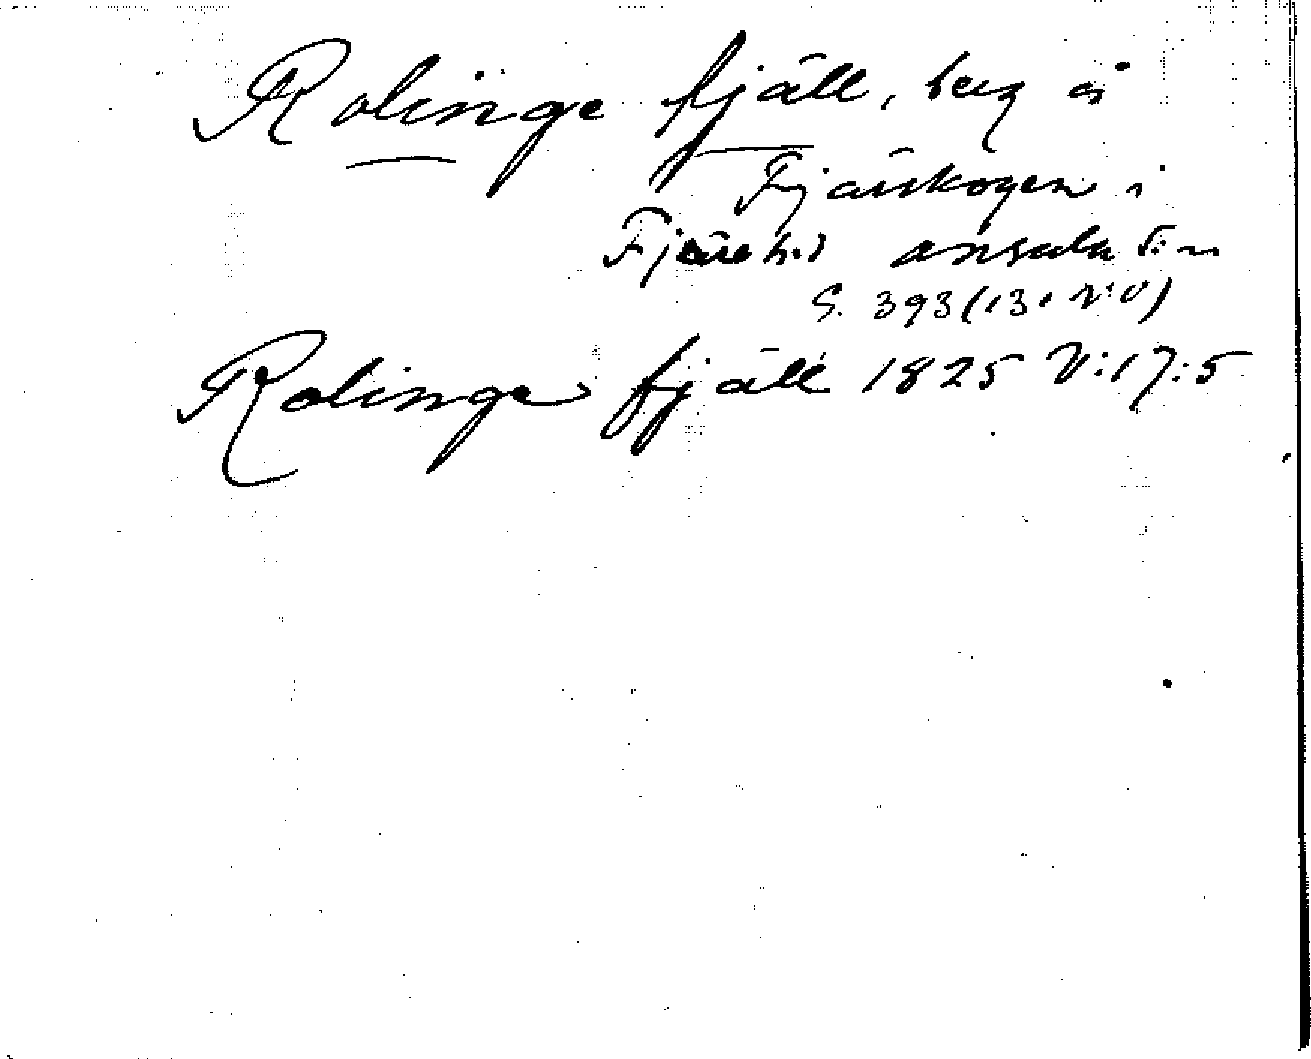 Rolinge fjäll, berg å
Fjärskogen i
Fjäre h:d onsala s:n
S. 393 (13 i N:O)
Rolinge fjäll 1825 V:17:5